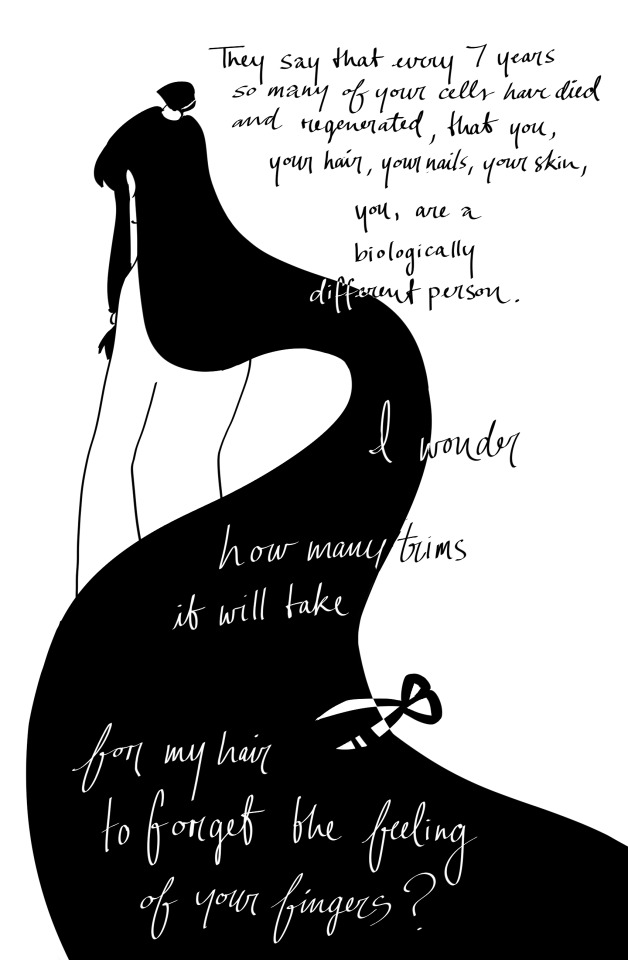 They say that every 7 years
so many of your cells have died
and regenerated, that you,
your hair, your nails, your skin,
you, are a
biologically
different person.
I wonder
how many trims
it will take
for my hair
to forget the feeling
of your fingers?